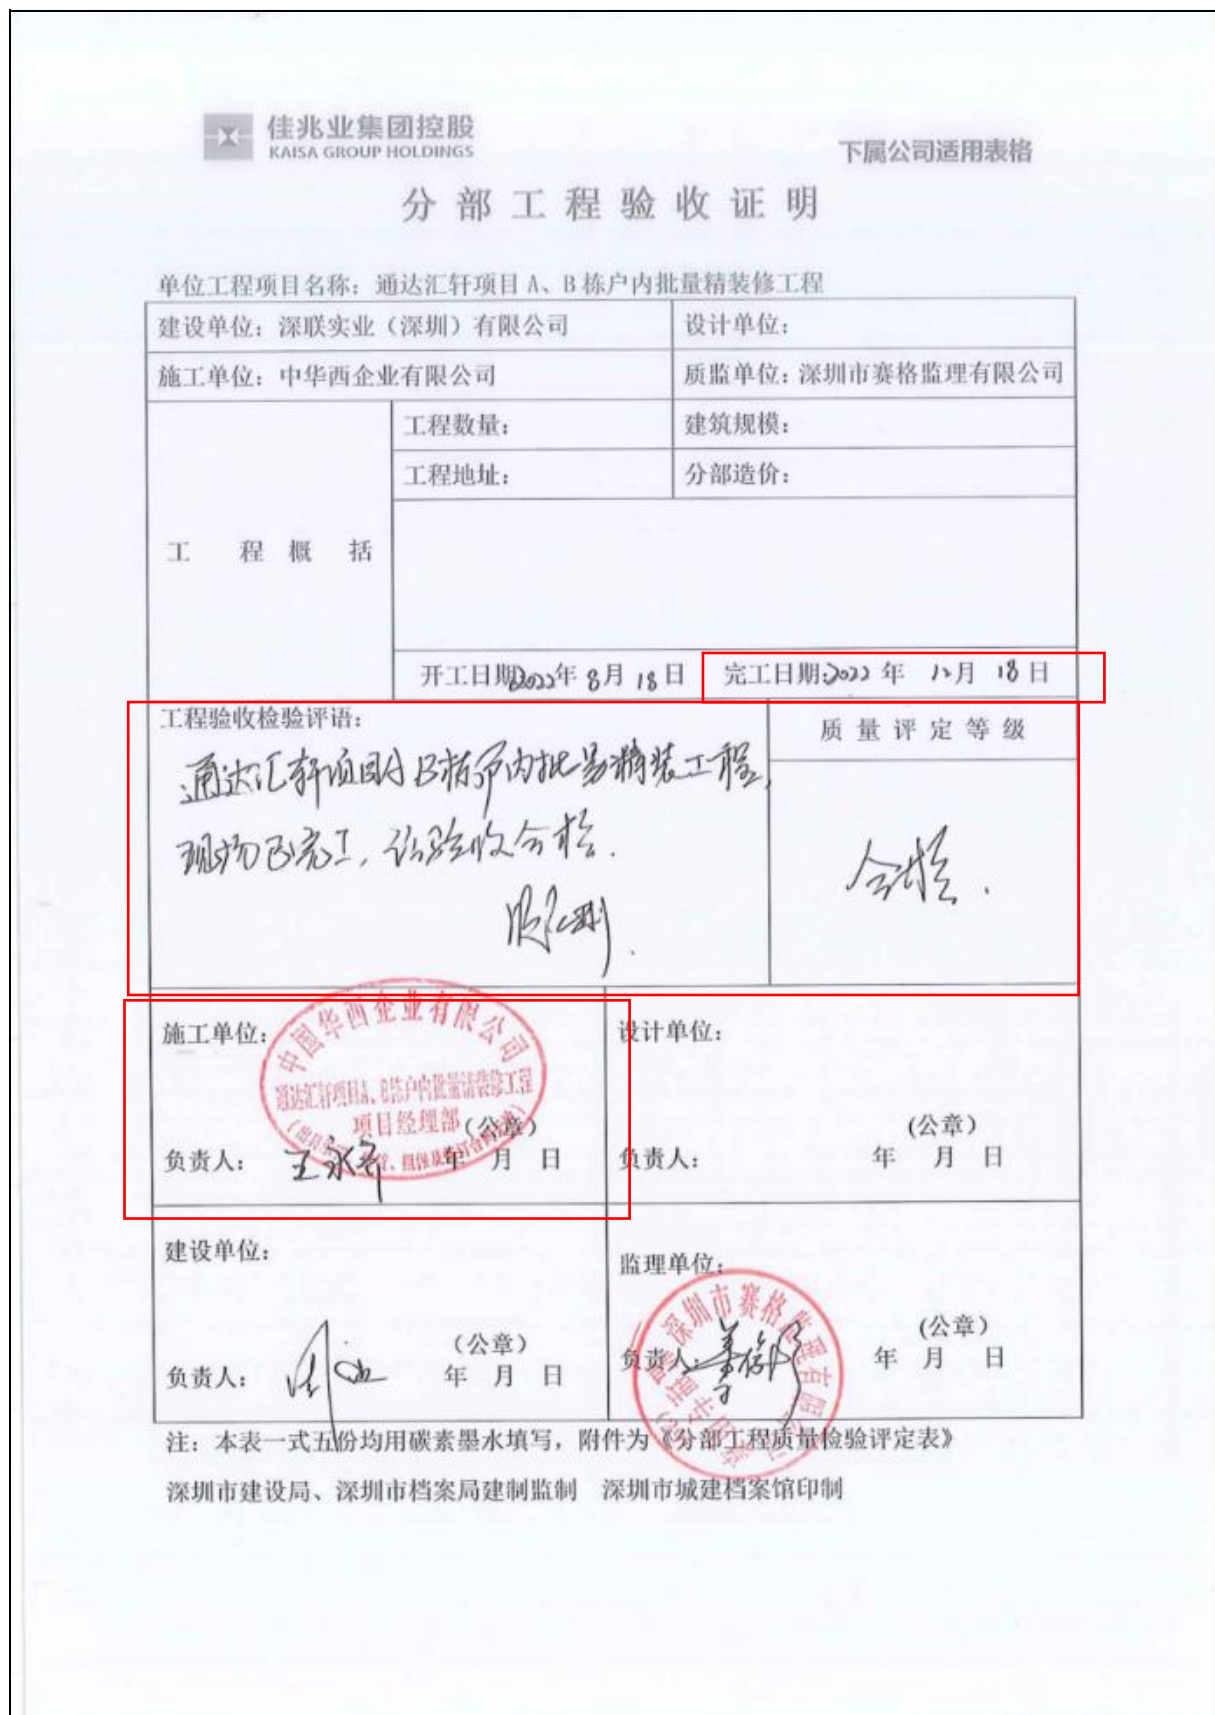 佳兆业集团控股
KAISA GROUP HOLDINGS
下属公司适用表格
分部工程验收证明
单位工程项目名称：通达汇轩项目 A、B 栋户内批量精装修工程
建设单位：深联实业（深圳）有限公司 设计单位：
施工单位：中华西企业有限公司 质监单位：深圳市赛格监理有限公司
工程数量： 建筑规模：
工程地址： 分部造价：
工 程 概 括
开工日期2022年 8月 18日 完工日期:2022 年 12月 18日
工程验收检验评语： 质量评定等级
通达汇轩项目A B栋户内批量精装工程，
现场已完工，试验收合格. 合格.
施工单位： 设计单位：
中国华西企业有限公司
通达汇轩项目A、B栋户内批量精装修工程
项目经理部
（公章） (公章)
负责人： 王永 年 月 日 负责人： 年 月 日
建设单位： 监理单位：
深圳市赛格监理有限公司
（公章） (公章)
负责人： 年 月 日 负责人： 年 月 日
注：本表一式五份均用碳素墨水填写，附件为《分部工程质量检验评定表》
深圳市建设局、深圳市档案局建制监制 深圳市城建档案馆印制